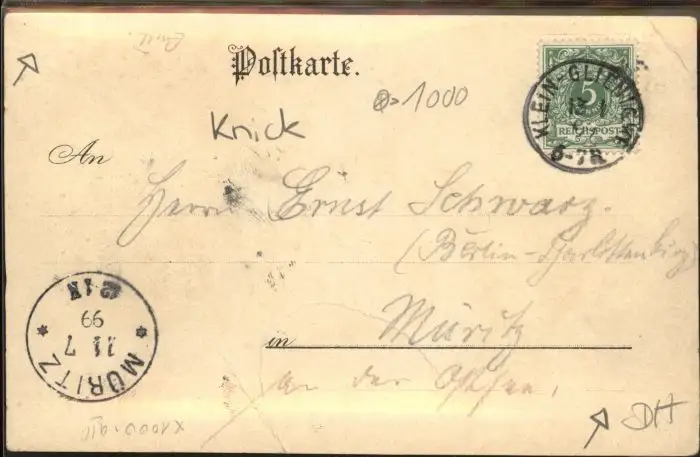 Postkarte.
0-1000
Knick
KLEIN-GLIENICKE
5
REICHSPOST
5-7N
An
Herrn Ernst Schwarz.
(Berlin-Charlottenburg)
in Müritz
an der Ostsee.
MÜRITZ
11 7
99
DH